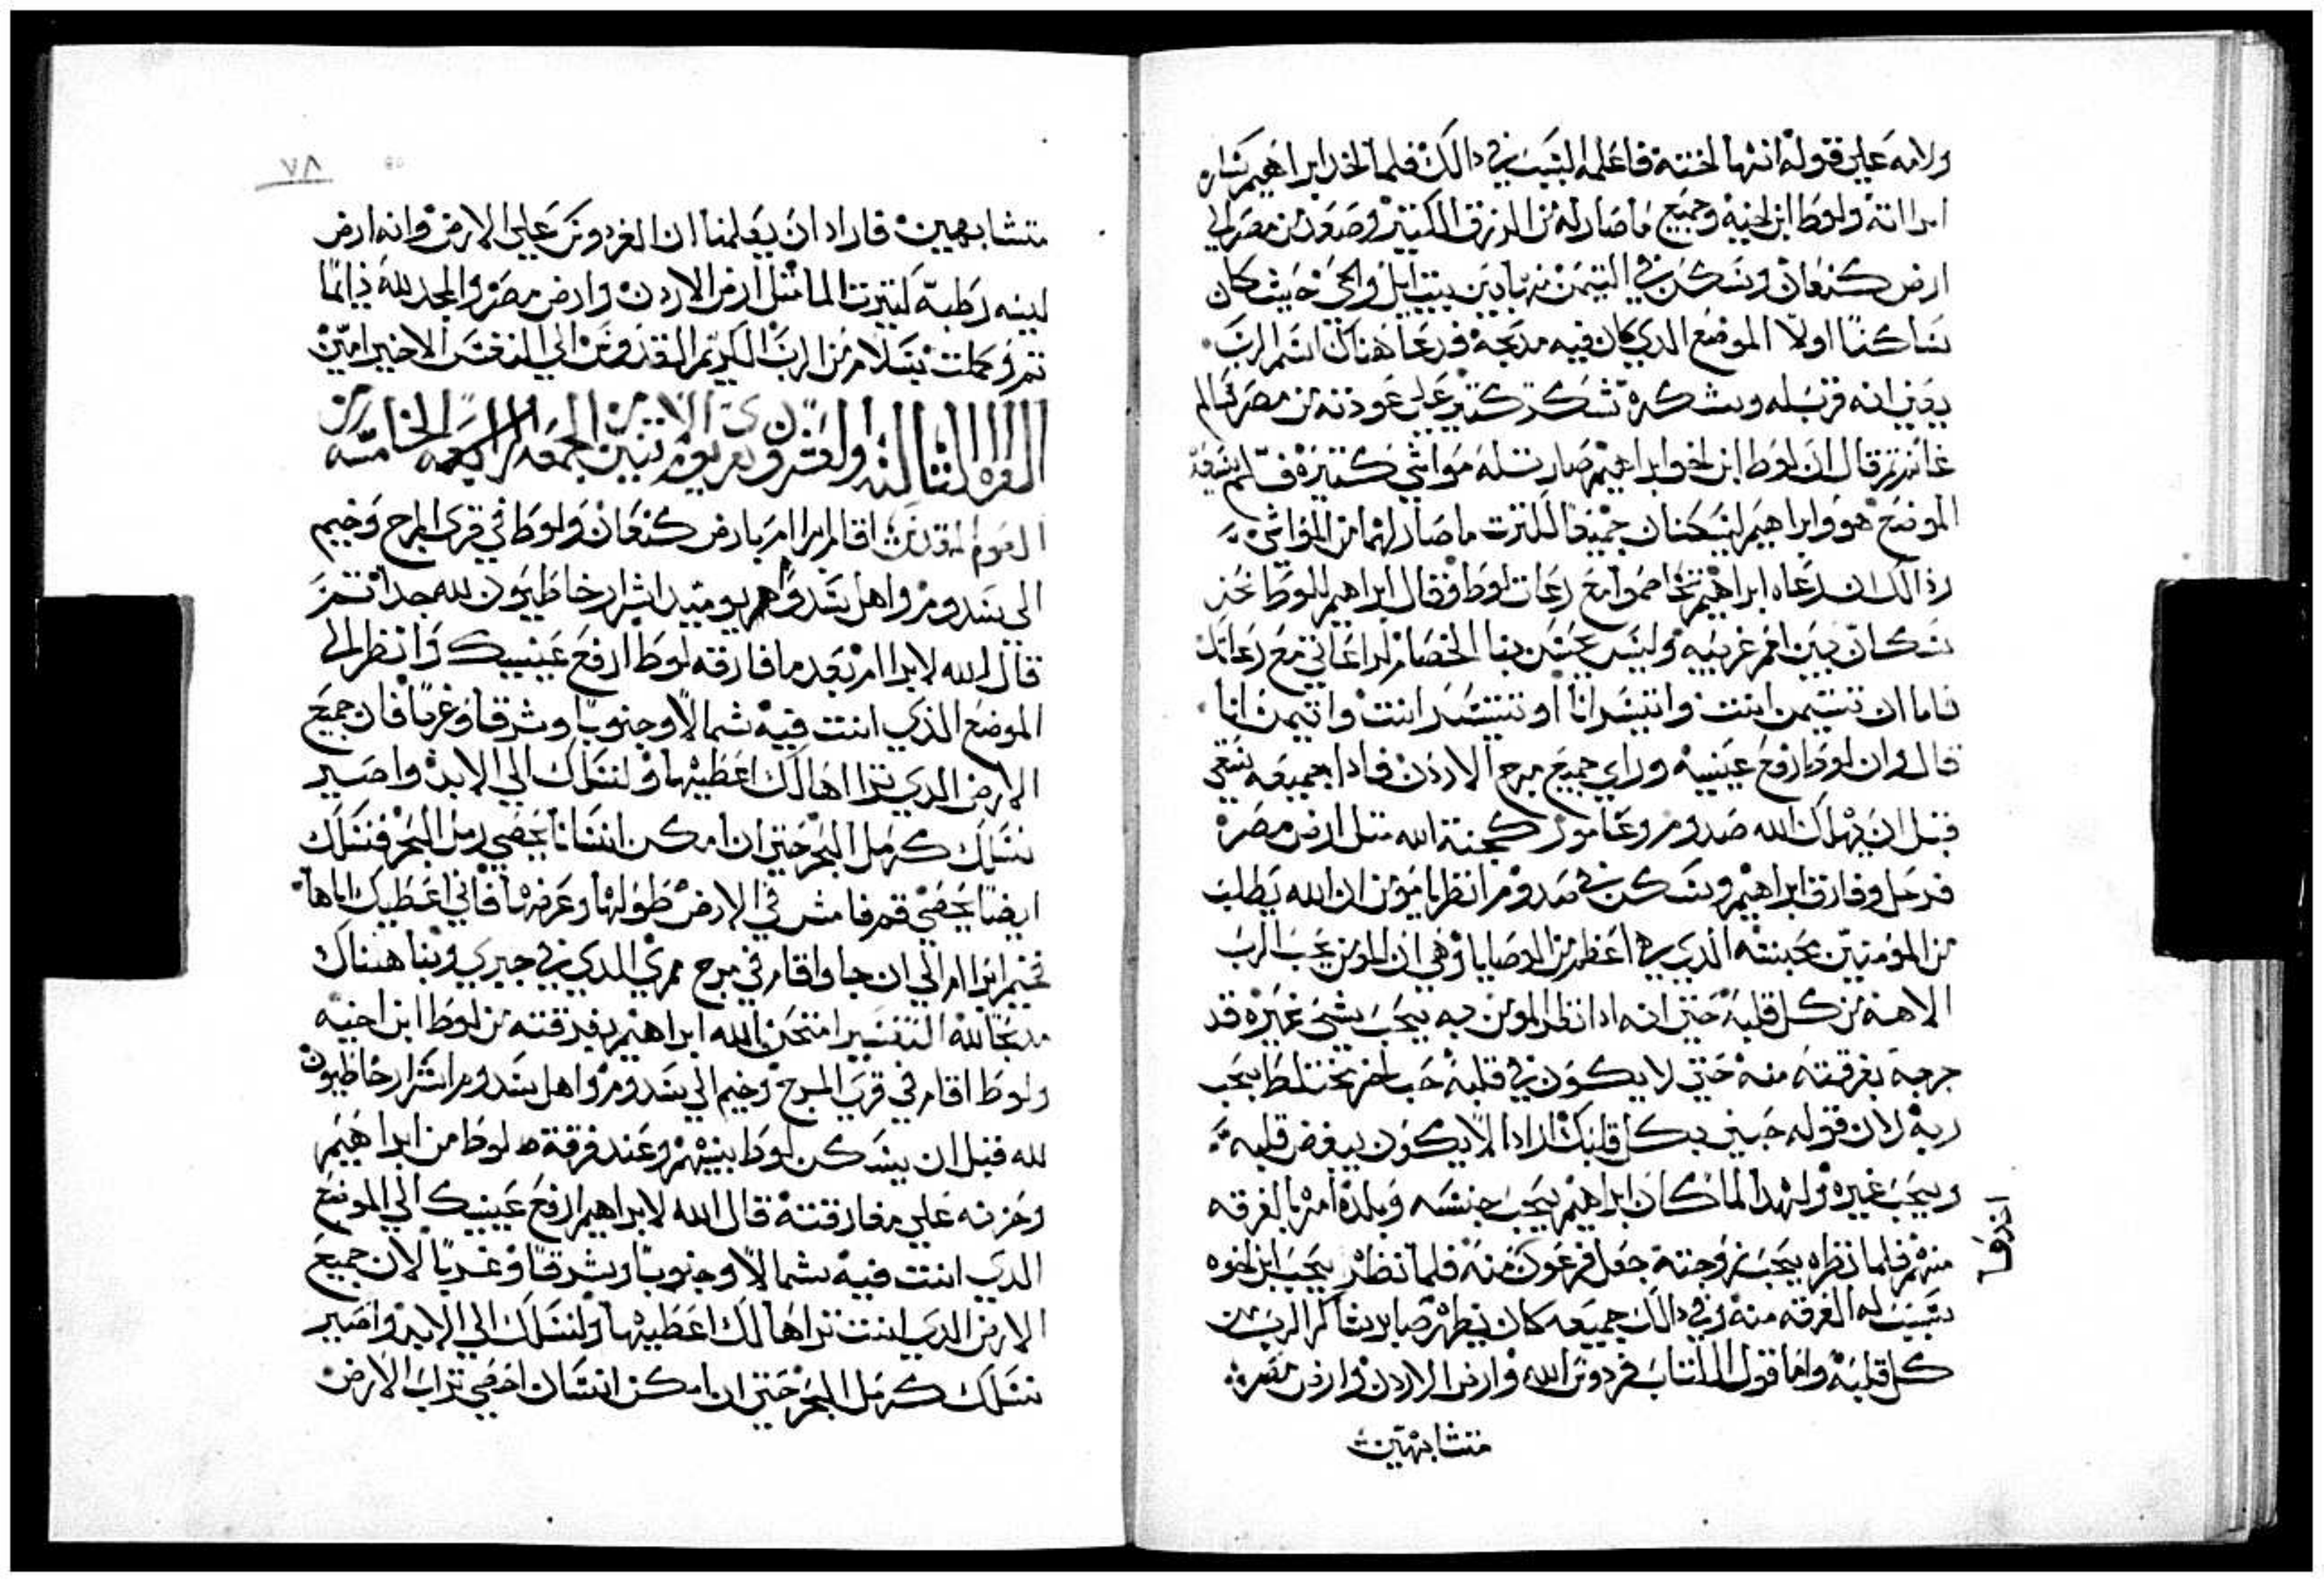 ولامه علي قوله انها اخته فاعلمه السبب في دالك فلما اخد ابراهيم ساره
امراته ولوط ابن اخيه وجميع ما صار له من الرزق الكتير وصعد من مصر الي
ارض كنعان وسكن في التيمن نها بين بيت ايل والحي حيث كان
ساكنا اولا الموضع الدي كان فيه مدبحه فدعا هناك اسم الرب
يعني انه قرب له وشكره شكر كتير علي عودته من مصر سالم
غانم تم قال ان لوط ابن اخو ابراهيم صارت له مواشي كتيره فلم يسعهم
الموضع هو وابراهيم ليسكنان جميعا لكترت ما صار لهما من المواشي
ودالك ان رعاه ابراهيم تخاصموا مع رعات لوط فقال ابراهيم للوط نحن
سكان بين امم غريبه وليس يحسن بنا الخصام لرعاتي مع رعاتك
فاما ان تتيمن انت واتيسر انا او تتيسر انت واتيمن انا
قال وان لوط رفع عينيه وراي جميع مرج الاردن فادا بجميعه يسقي
قبل ان يهلك الله صدوم وعامورا كجنة الله متل ارض مصر
فرحل وفارق ابراهيم وسكن في صدوم انظر يا مومن ان الله يطلب
من المومنين محبته الدي هي اعظم من الوصايا وهي ان المومن يحب الرب
الاهه من كل قلبه حتي انه ادا نظر المومن به يحب شي غيره قد
جربه بفرقته منه حتي لا يكون في قلبه حب اخر يختلط بحب
ربه لان قوله حبني بكل قلبك اراد الا يكون ببعض قلبه
ويحب غيره ولهدا لما كان ابراهيم يحب جنسه وبلده امره بالفرقه
منهم فلما نظره يحب زوجته جعل فرعون منه فلما نظر يحب ابن اخوه
سبب له الفرقه منه وفي دالك جميعه كان يظهر صابر شاكر الرب من
كل قلبه واما قول الكتاب فردوس الله وارض الاردن وارض مصر
متشابهين
اخدها
٧٨
متشابهين فاراد ان يعلمنا ان الفردوس علي الارض وانه ارض
لينه رطبه لكترت الما متل ارض الاردن وارض مصر والمجد لله دايما
تم وكملت بسلام من الرب الكريم القدوس الي النفس الاخير امين
القراه التالته والعشرون يوم الاتنين من الجمعه الرابعه من الخامسه
الصوم المقدس اقام ابرام بارض كنعان ولوط في قري المرج وخيم
الي سدوم واهل سدوم يوميد اشرار خاطيون لله جدا تم
قال الله لابرام بعد ما فارقه لوط ارفع عينيك وانظر الي
الموضع الذي انت فيه شمالا وجنوبا وشرقا وغربا فان جميع
الارض الدي تراها لك اعطيها ولنسلك الي الابد واصير
نسلك كرمل البحر حتي ان امكن انسانا يحصي رمل البحر فنسلك
ايضا يحصي قم فامش في الارض طولها وعرضها فاني اعطيك اياها
فخيم ابرام الي ان جا واقام في مرج ممري الدي في حبري وبنا هناك
مدبحا لله التفسير امتحن الله ابراهيم بفرقته من لوط ابن اخيه
ولوط اقام في قري المرج وخيم الي سدوم واهل سدوم اشرار خاطيون
لله قبل ان يسكن لوط بينهم وعند فرقة لوط من ابراهيم
وحزنه علي مفارقته قال الله لابراهيم ارفع عينيك الي الموضع
الدي انت فيه شمالا وجنوبا وشرقا وغربا لان جميع
الارض الدي انت تراها لك اعطيها ولنسلك الي الابد واصير
نسلك كرمل البحر حتي ان امكن انسان احصي تراب الارض